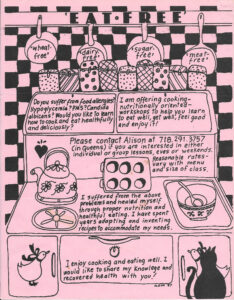 "EAT-FREE"
"wheat-
free"
"dairy-
free"
"sugar-
free"
"meat-
free"
Do you suffer from food allergies?
Hypoglycemia? PMS? Candida
albicans? Would you like to learn
how to cook and eat healthfully
and deliciously?
I am offering cooking-
nutritionally oriented-
workshops to help you learn
to eat well, get well, feel good
and enjoy it!
Please contact Alison at 718.291.3757
(in Queens) if you are interested in either
individual or group lessons, eves or weekends.
Reasonable rates-
vary with menu
and size of class.
I suffered from the above
problems and healed myself
through proper nutrition and
healthful eating. I have spent
years adapting and inventing
recipes to accommodate my needs.
I enjoy cooking and eating well. I
would like to share my knowledge and
recovered health with you?